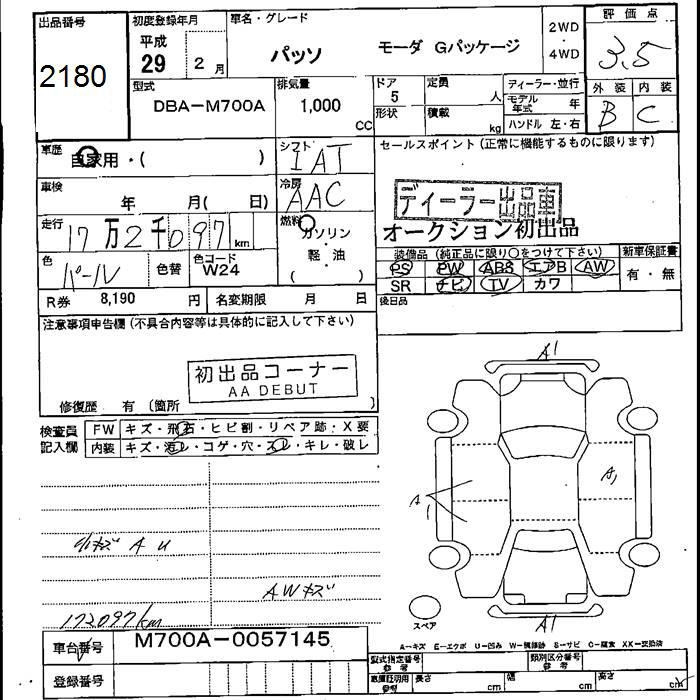 出品番号
2180
初度登録年月
平成
29 2 月
車名・グレード
パッソ モーダ Gパッケージ
2WD
・
4WD
評価点
3.5
外装 内装
B C
型式
DBA-M700A
排気量
1,000
CC
ドア
5
形状
定員
人
積載
kg
ディーラー・並行
モデル年式 年
ハンドル 左・右
車歴
自家用・( )
シフト
IAT
車検
年 月( 日)
冷房
AAC
走行
17万2千097km
燃料
ガソリン
・
軽・油
( )
色
パール
色替
色コード
W24
R券 8,190 円
名変期限 月 日
セールスポイント(正常に機能するものに限ります)
ディーラー出品車
オークション初出品
装備品(純正品に限り○をつけて下さい)
PS PW ABS エアB AW
SR ナビ TV カワ
新車保証書
有・無
後日品
注意事項申告欄(不具合内容等は具体的に記入して下さい)
初出品コーナー
AA DEBUT
修復歴 有(箇所 )
検査員
記入欄
FW キズ・飛石・ヒビ割・リペア跡・X要
内装 キズ・汚レ・コゲ・穴・スレ・キレ・破レ
小キズ A U
AWキズ
172097km
A1
A1
A1
A1
スペア
A-キズ E-エクボ U-凹み W-補修跡 S-サビ C-腐食 XX-交換済
車台番号
M700A-0057145
登録番号
型式指定番号
参考
類別区分番号
参考
車庫証明用
参考
長さ cm
幅 cm
高さ cm